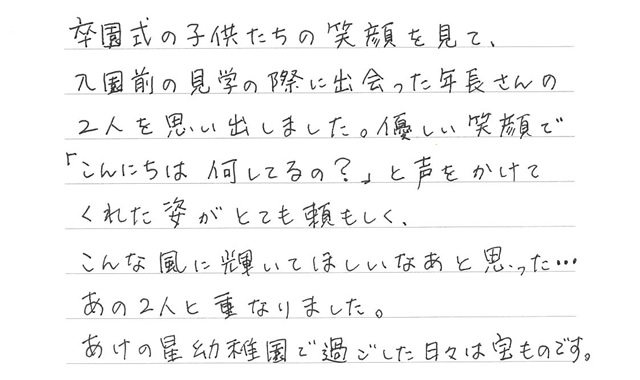 卒園式の子供たちの笑顔を見て、
入園前の見学の際に出会った年長さんの
2人を思い出しました。優しい笑顔で
「こんにちは 何してるの?」と声をかけて
くれた姿がとても頼もしく、
こんな風に輝いてほしいなあと思った…
あの2人と重なりました。
あけの星幼稚園で過ごした日々は宝ものです。